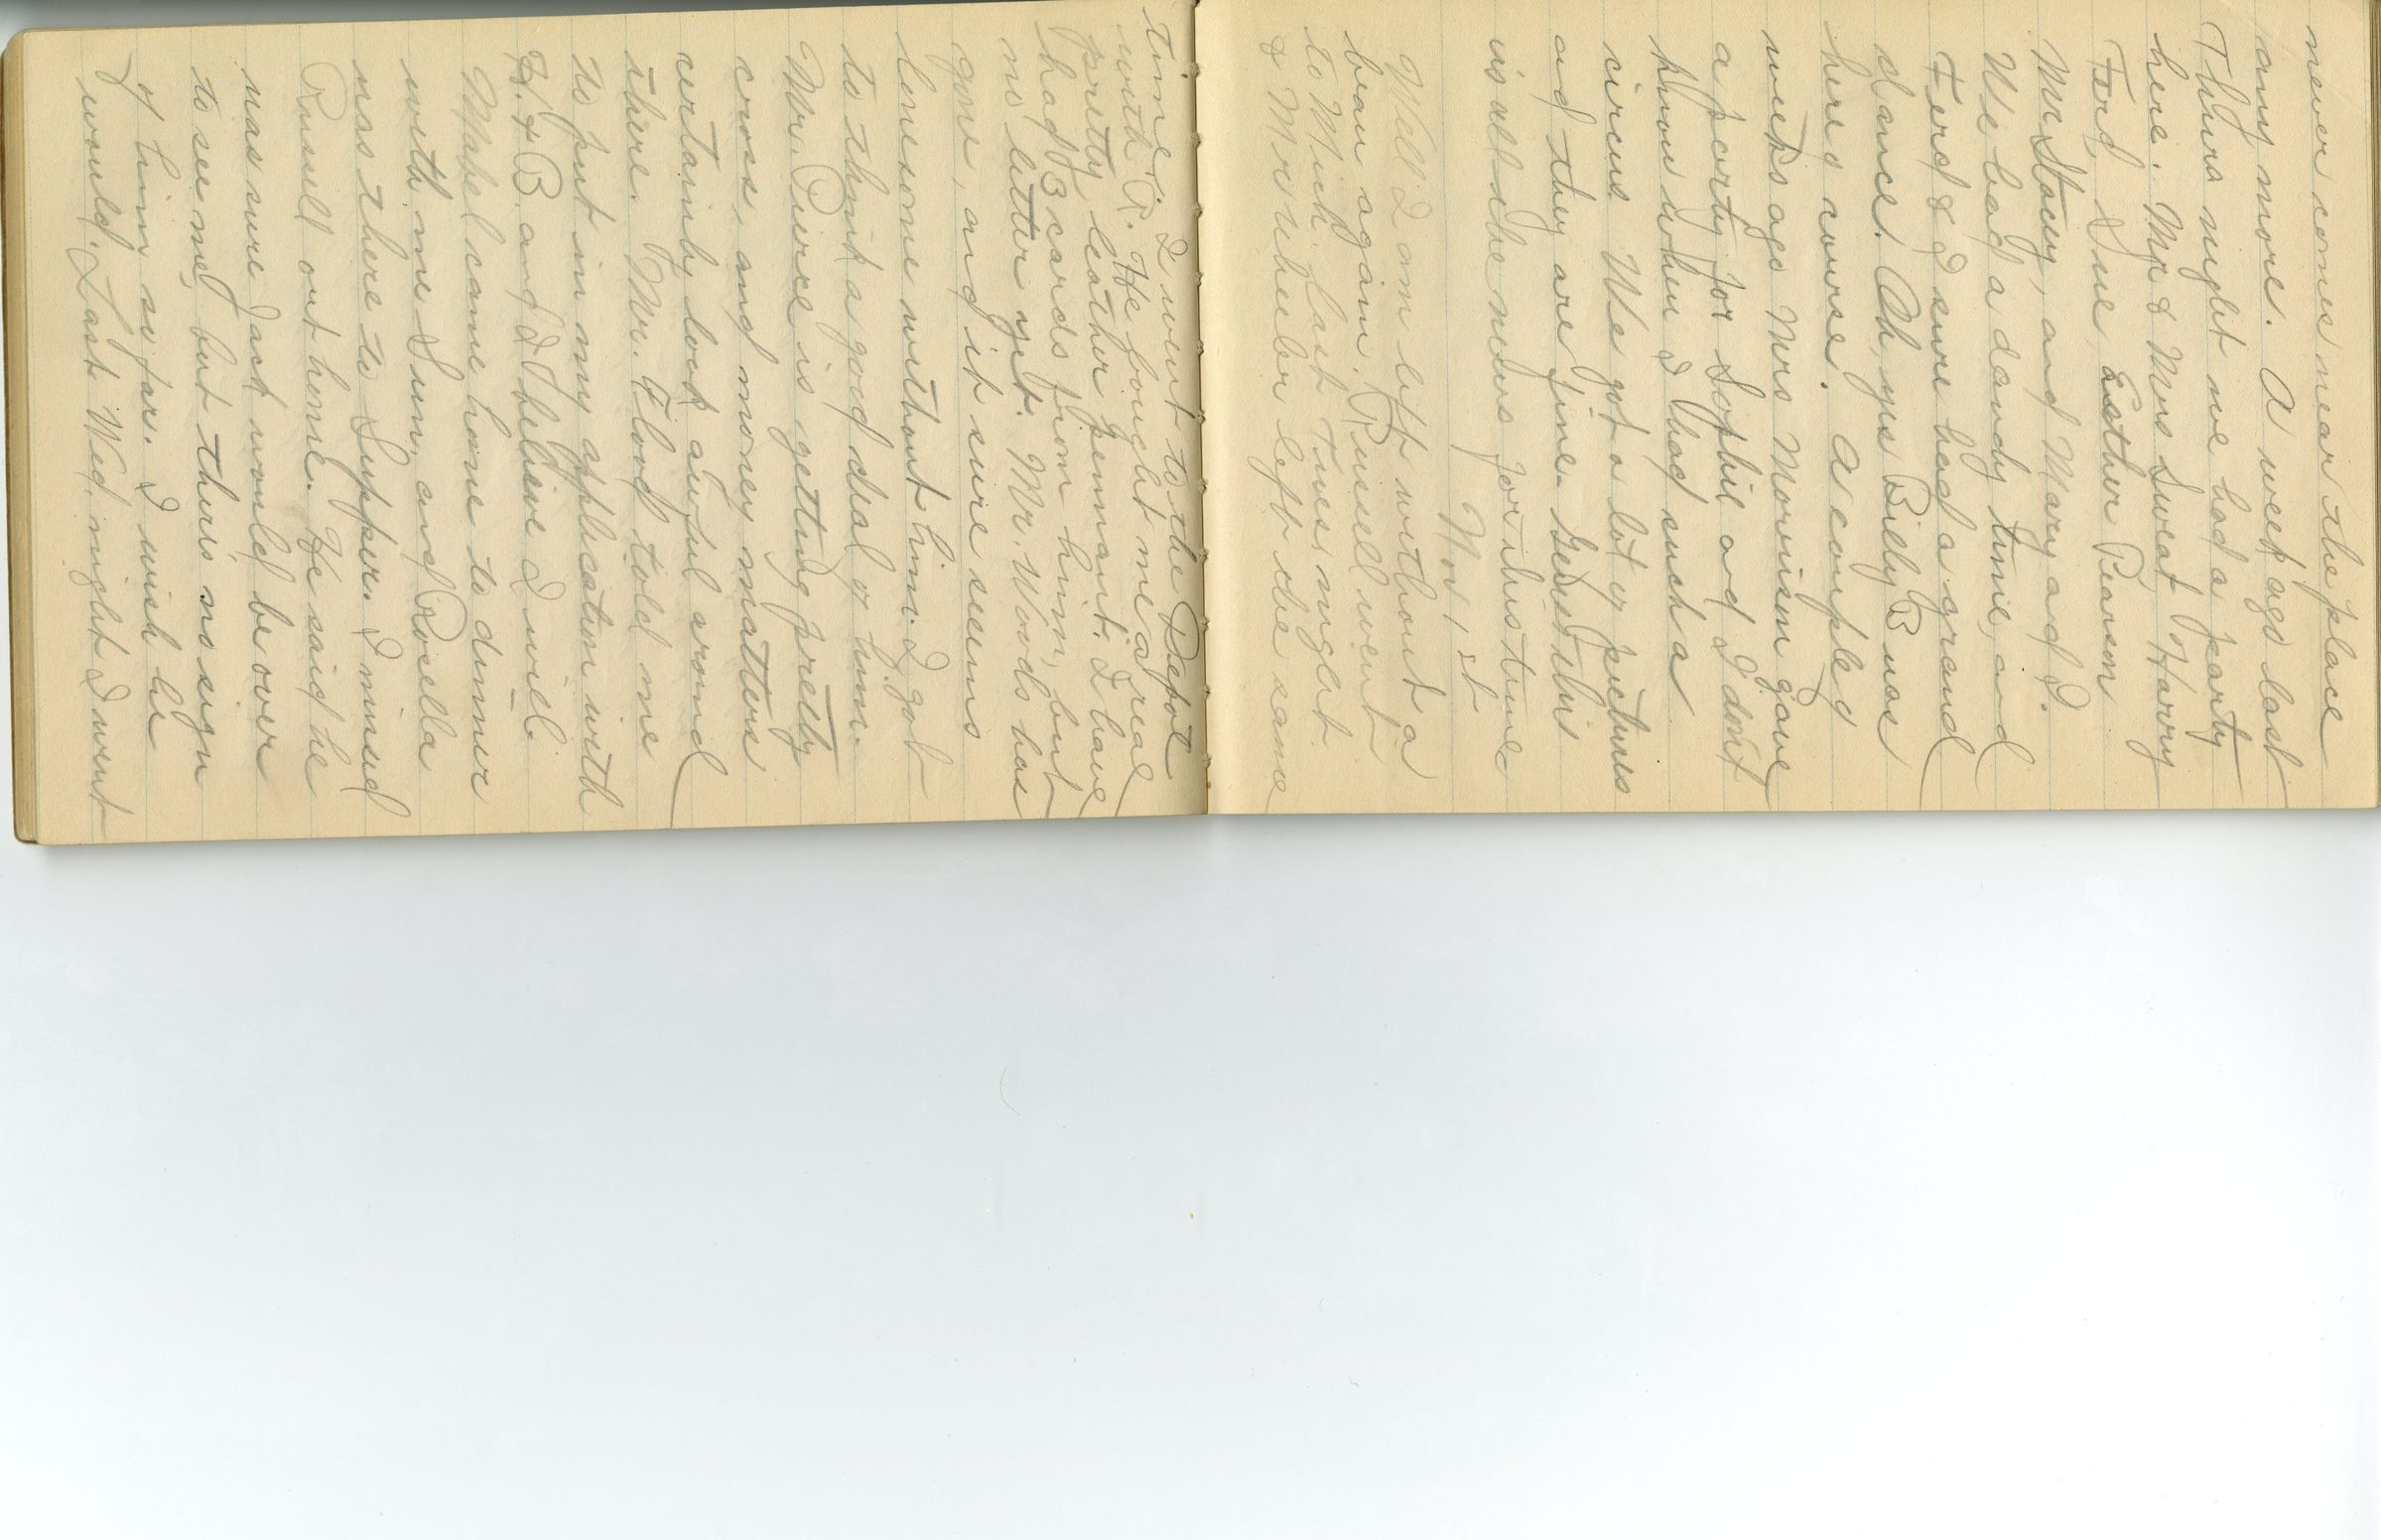 never comes near the place
any more. A week ago last
Thurs night we had a party
here. Mr & Mrs Sweat, Harry
Ford, Sue, Esther Pearson
Mr Story, and Mary and I.
We had a dandy time, and
Ferd & I sure had a grand
dance. Oh, yes Billy B was
here course. A couple of
weeks ago Mrs Morrison gave
a party for Sophie and I dont
know when I had such a
circus. We got a lot of pictures
and they are fine. Guess this
is all the news for this time
Nov 1st
Well I am left without a
beau again. Russell went
to Mich. last Tues. night
& Mr Wheeler left the same
time. I went to the Depot
with R. He bought me a real
pretty leather pennant. I have
had 3 cards from him, but
no letter yet. Mr. Woods has
gone, and it sure seems
lonesome without him. I got
to think a good deal of him.
Mr. Pierce is getting pretty
cross, and money matters
certainly look awful around
there. Mr. Flood told me
to put in my application with
H. & B. and I believe I will.
Mabel came home to dinner
with me Sun, and Rosella
was there to Supper. I missed
Russell out home. He said he
was sure Jack would be over
to see me, but there's no sign
of him so far. I wish he
would. Last Wed. night I went